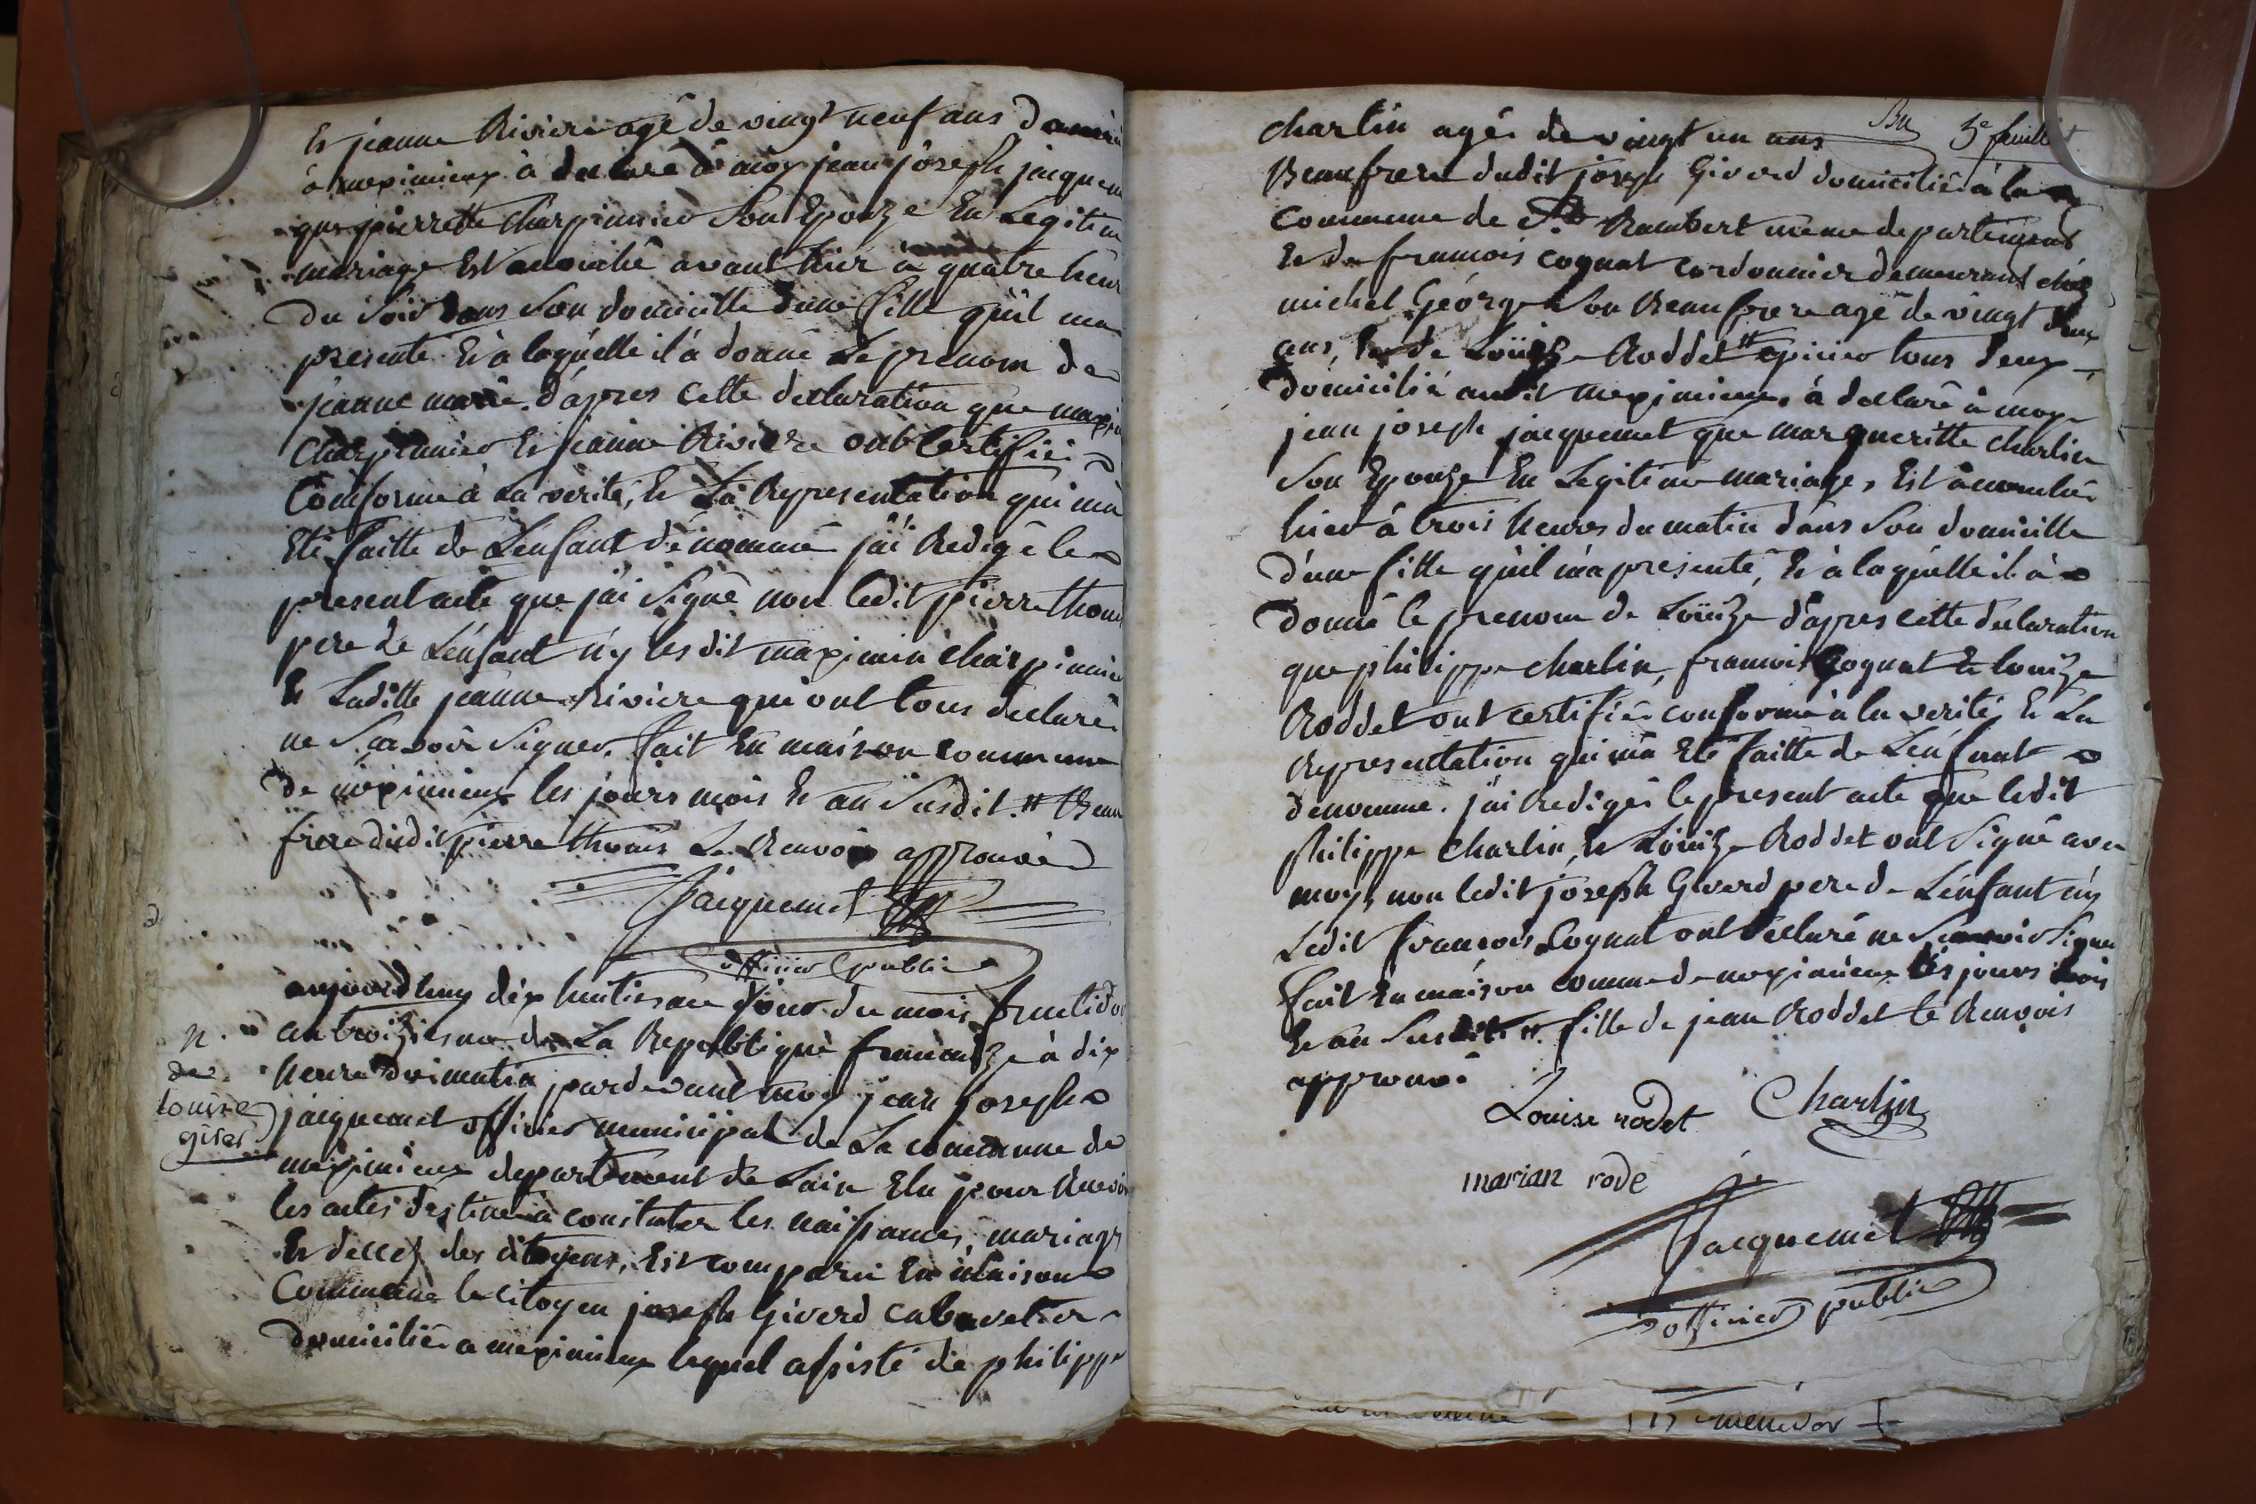 Et jeanne Riviere agé de vingt neuf ans
à meximieux à declaré à moy jean joseph jacquem
que pierrette Charpinnier Son Epouze En Legitime
mariage Est acouchê avant hier à quatre heur
Du Soir dans Son domicille d'une fille qu'il ma
presenté Et à laquelle il à donné Le prenom de
jeanne marie. d'apres cette declaration que
Charpinnier Et jeanne Riviere ont Certifiéz
Conforme à La verité, Et La Representation qui ma
Eté faitte de L'enfant dénommé j'ai Redigé le
present acte que j'ai Signé non ledit pierre thom
pere de L'enfant n'y les dit maximin Charpinnie
Et Laditte jeanne Riviere qui ont tous declaré
ne Sçavoir Signer. fait En maison commune
De meximieux les jours mois Et an Susdit. # Beau
frere dudit pierre thomas Le Renvois approuvé
Jacquemet
officier public
aujourdhuy dix huitiesme jour du mois fructidor
an troiziesme de La Republique francaize à dix
heure du matin pardevant moy jean joseph
jacquemet officier municipal de La commune de
meximieux departement de Lain Elu pour Recevoir
les actes destiné à constater les naissances, mariages
Et decez des citoyens, Est comparu En maison
Commune le citoyen joseph Giverd cabaretier
domicilié a meximieux lequel assisté de philippe
N.
de
Louise
3e feuillet
Charlin agé de vingt un ans
Beaufrere dudit joseph Giverd domicilié à la
Commune de St Rambert même departement
Et de francois Cognat cordonnier demeurant chéz
michel George Son Beaufrere agé de vingt deux
ans, Et de Loüize Roddet # epicier tous deux
Domicilié audit meximieux à declaré à moy
jean joseph jacquemet que margueritte charlin
Son Epouze En Legitime mariage, Est acouchée
hier à trois heures du matin dans Son domicille
d'une fille qu'il m'a presenté, Et à laquelle il à
donné le prenom de Loüize d'apres cette declaration
que philippe charlin, francois Cognat Et Louize
Roddet ont certifiée conforme à la verité Et La
Representation qui m'a Eté faitte de L'enfant
denommé. j'ai Redigér le present acte que ledit
philippe Charlin, Et Loüize Roddet ont Signé avec
moy, non ledit joseph Giverd pere de L'enfant n'y
Ledit francois Cognat ont declaré ne Scavoir Signer
fait En maison commune de meximieux les jours mois
Et an Susdits #. fille de jean Roddet le Renvois
approuvé
Louise rodet Charlin
marian rode
Jacquemet
officier public